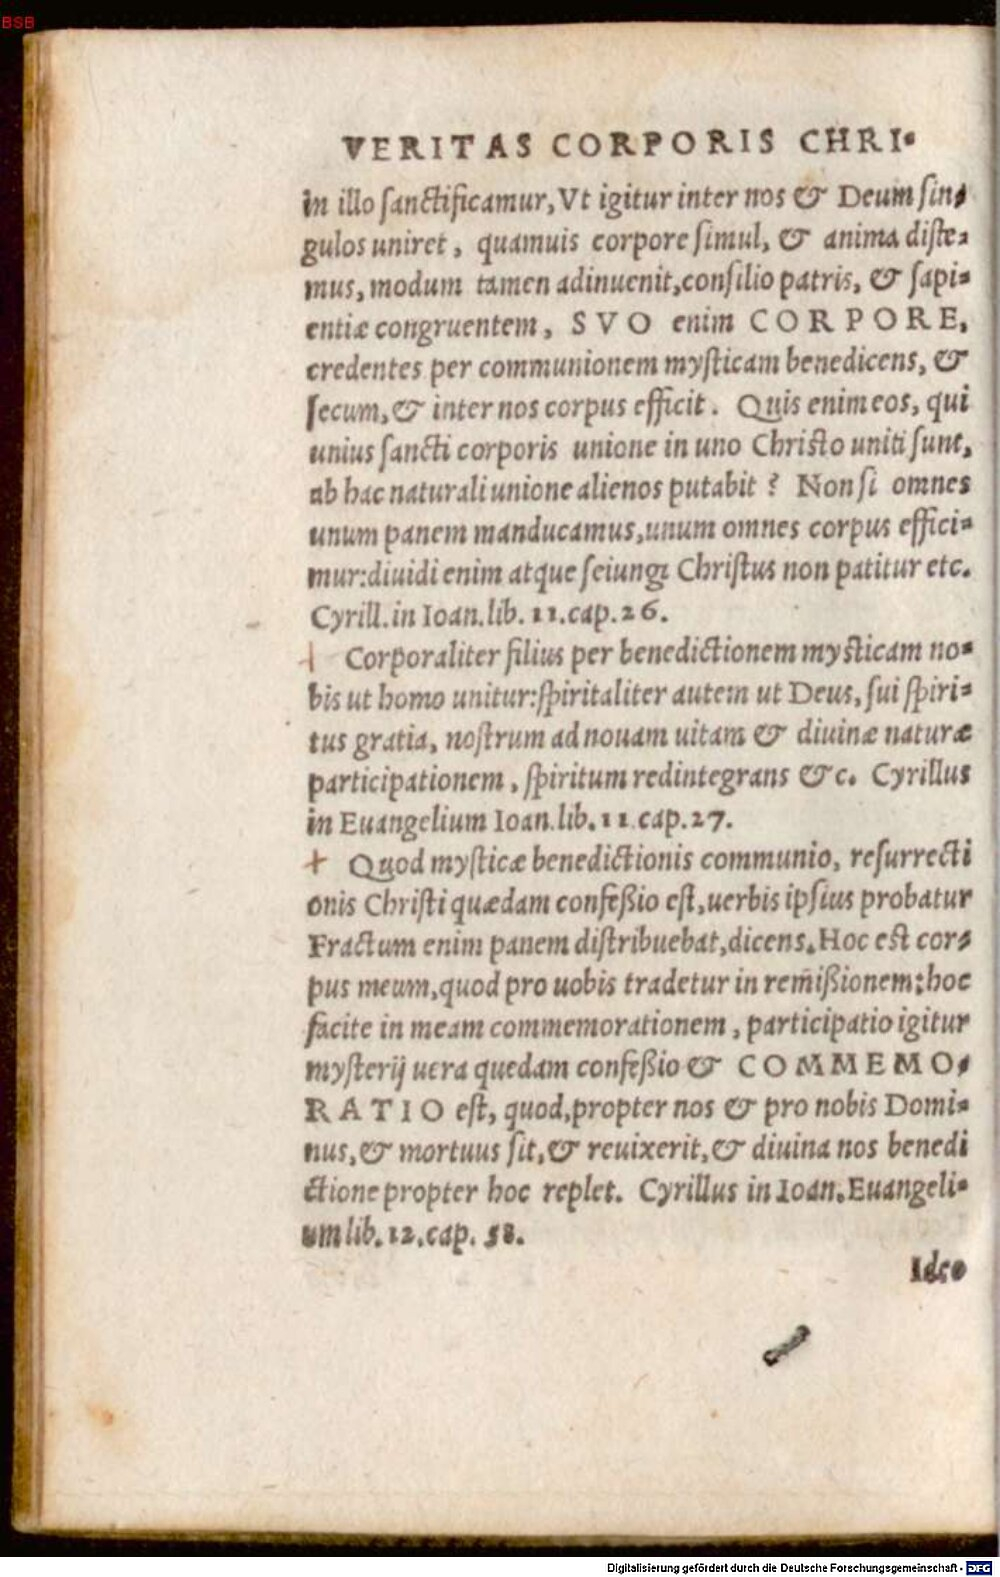 BSB
VERITAS CORPORIS CHRI-
in illo sanctificamur, Vt igitur inter nos & Deum sin-
gulos uniret, quamuis corpore simul, & anima diste-
mus, modum tamen adinuenit, consilio patris, & sapi-
entiæ congruentem, SVO enim CORPORE,
credentes per communionem mysticam benedicens, &
secum, & inter nos corpus efficit. Quis enim eos, qui
unius sancti corporis unione in uno Christo uniti sunt,
ab hac naturali unione alienos putabit? Non si omnes
unum panem manducamus, unum omnes corpus effici-
mur: diuidi enim atque seiungi Christus non patitur etc.
Cyrill. in Ioan. lib. 11. cap. 26.
Corporaliter filius per benedictionem mysticam no-
bis ut homo unitur: spiritaliter autem ut Deus, sui spiri-
tus gratia, nostrum ad nouam uitam & diuinæ naturæ
participationem, spiritum redintegrans &c. Cyrillus
in Euangelium Ioan. lib. 11 cap. 27.
+ Quod mysticæ benedictionis communio, resurrecti
onis Christi quædam confeßio est, uerbis ipsius probatur
Fractum enim panem distribuebat, dicens. Hoc est cor-
pus meum, quod pro uobis tradetur in remißionem: hoc
facite in meam commemorationem, participatio igitur
mysterij uera quedam confeßio & COMMEMO-
RATIO est, quod, propter nos & pro nobis Domi-
nus, & mortuus sit, & reuixerit, & diuina nos benedi
ctione propter hoc replet. Cyrillus in Ioan. Euangeli-
um lib. 12. cap. 58.
Ideo
Digitalisierung gefördert durch die Deutsche Forschungsgemeinschaft - DFG